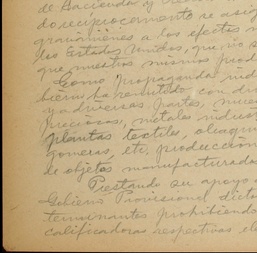 de Hacienda y
do reciprocamente se asig
gravámenes a los efectos
los Estados Unidos, que no s
que nuestros mismos prod
Como propaganda
bién ha remitido con di
y a diversas partes, mues
preciosas, metales indus
plantas textiles, oleagin
gomeras, etc, producción
de objetos manufacturados
Prestando su apoyo
Gobierno Provisional dictó
terminantes prohibiendo
calificadoras respectivas el